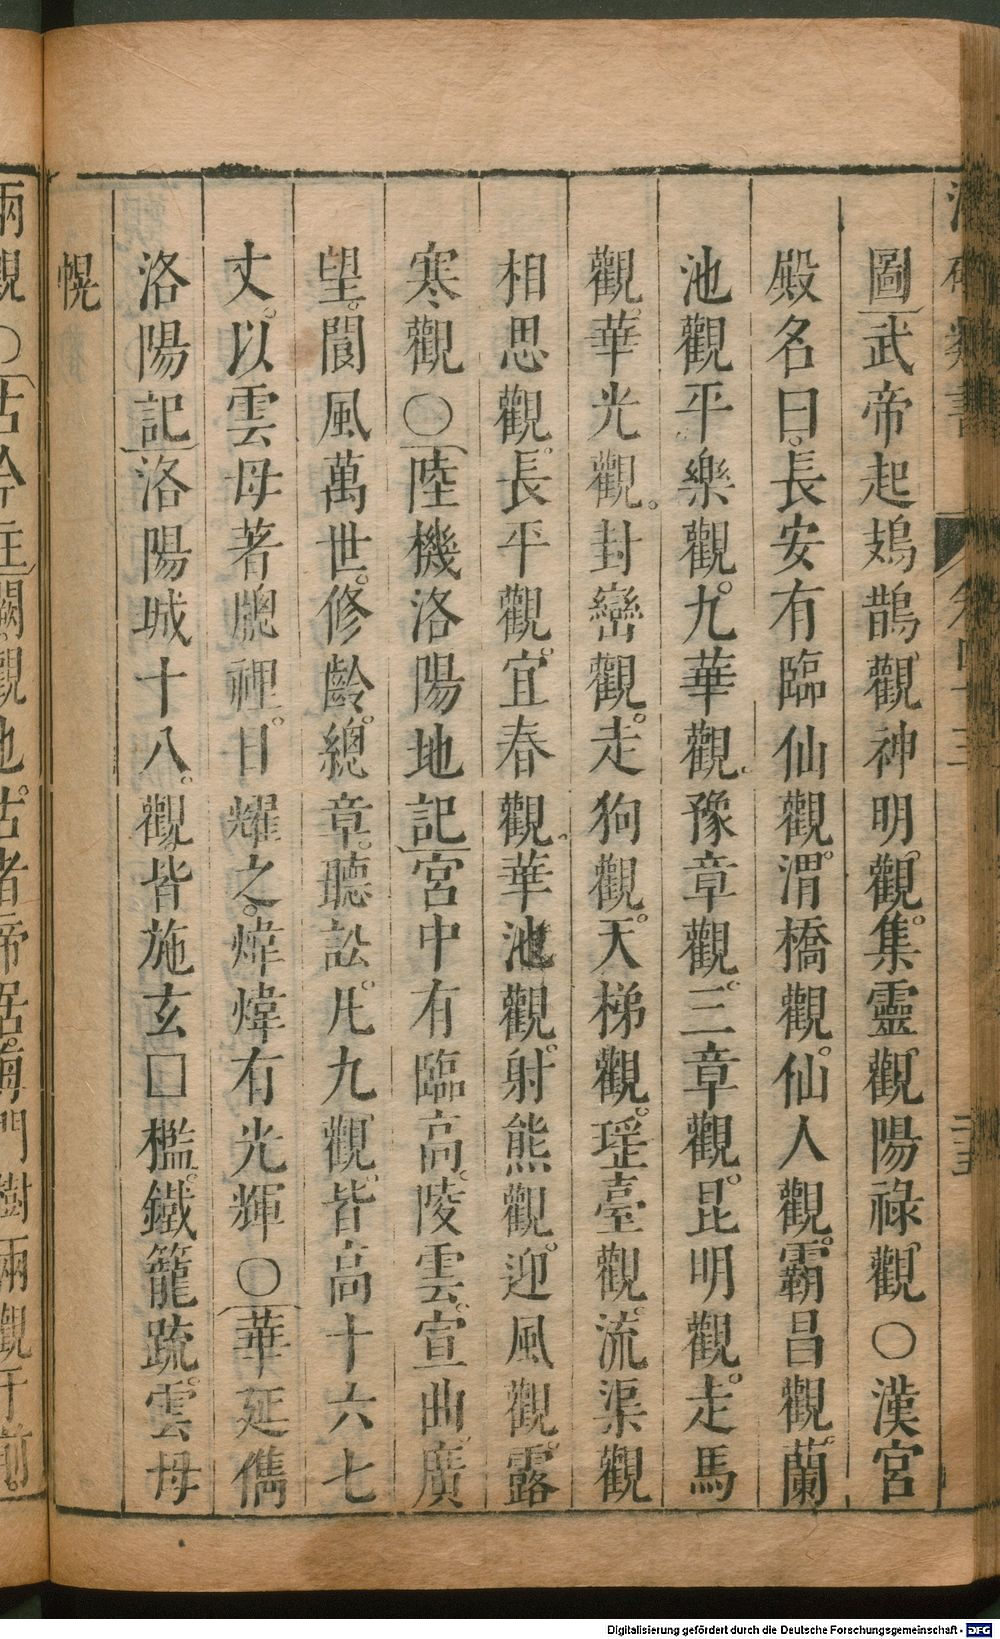 圖武帝起鳷鵲觀神明觀集靈觀陽祿觀○漢宮
殿名曰長安有臨仙觀渭橋觀仙人觀霸昌觀蘭
池觀平樂觀九華觀豫章觀三章觀昆明觀走馬
觀華光觀封巒觀走狗觀天梯觀瑤臺觀流渠觀
相思觀長平觀宜春觀華池觀射熊觀迎風觀露
寒觀○陸機洛陽地記宮中有臨高陵雲宣曲廣
望閬風萬世修齡總章聽訟凡九觀皆高十六七
丈以雲母著牕裡日耀之煒煒有光輝○華延儁
洛陽記洛陽城十八觀皆施玄□檻鐵籠疏雲母
幌
兩觀○古今註闕觀也古者帝居每門樹兩觀于前
Digitalisierung gefördert durch die Deutsche Forschungsgemeinschaft - DFG